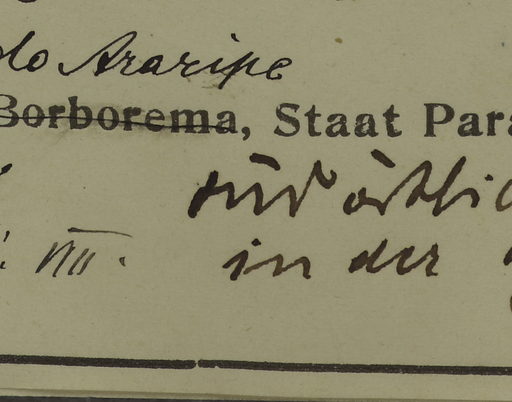 do Araripe
Borborema, Staat Para
südöstlic
VIII.
in der